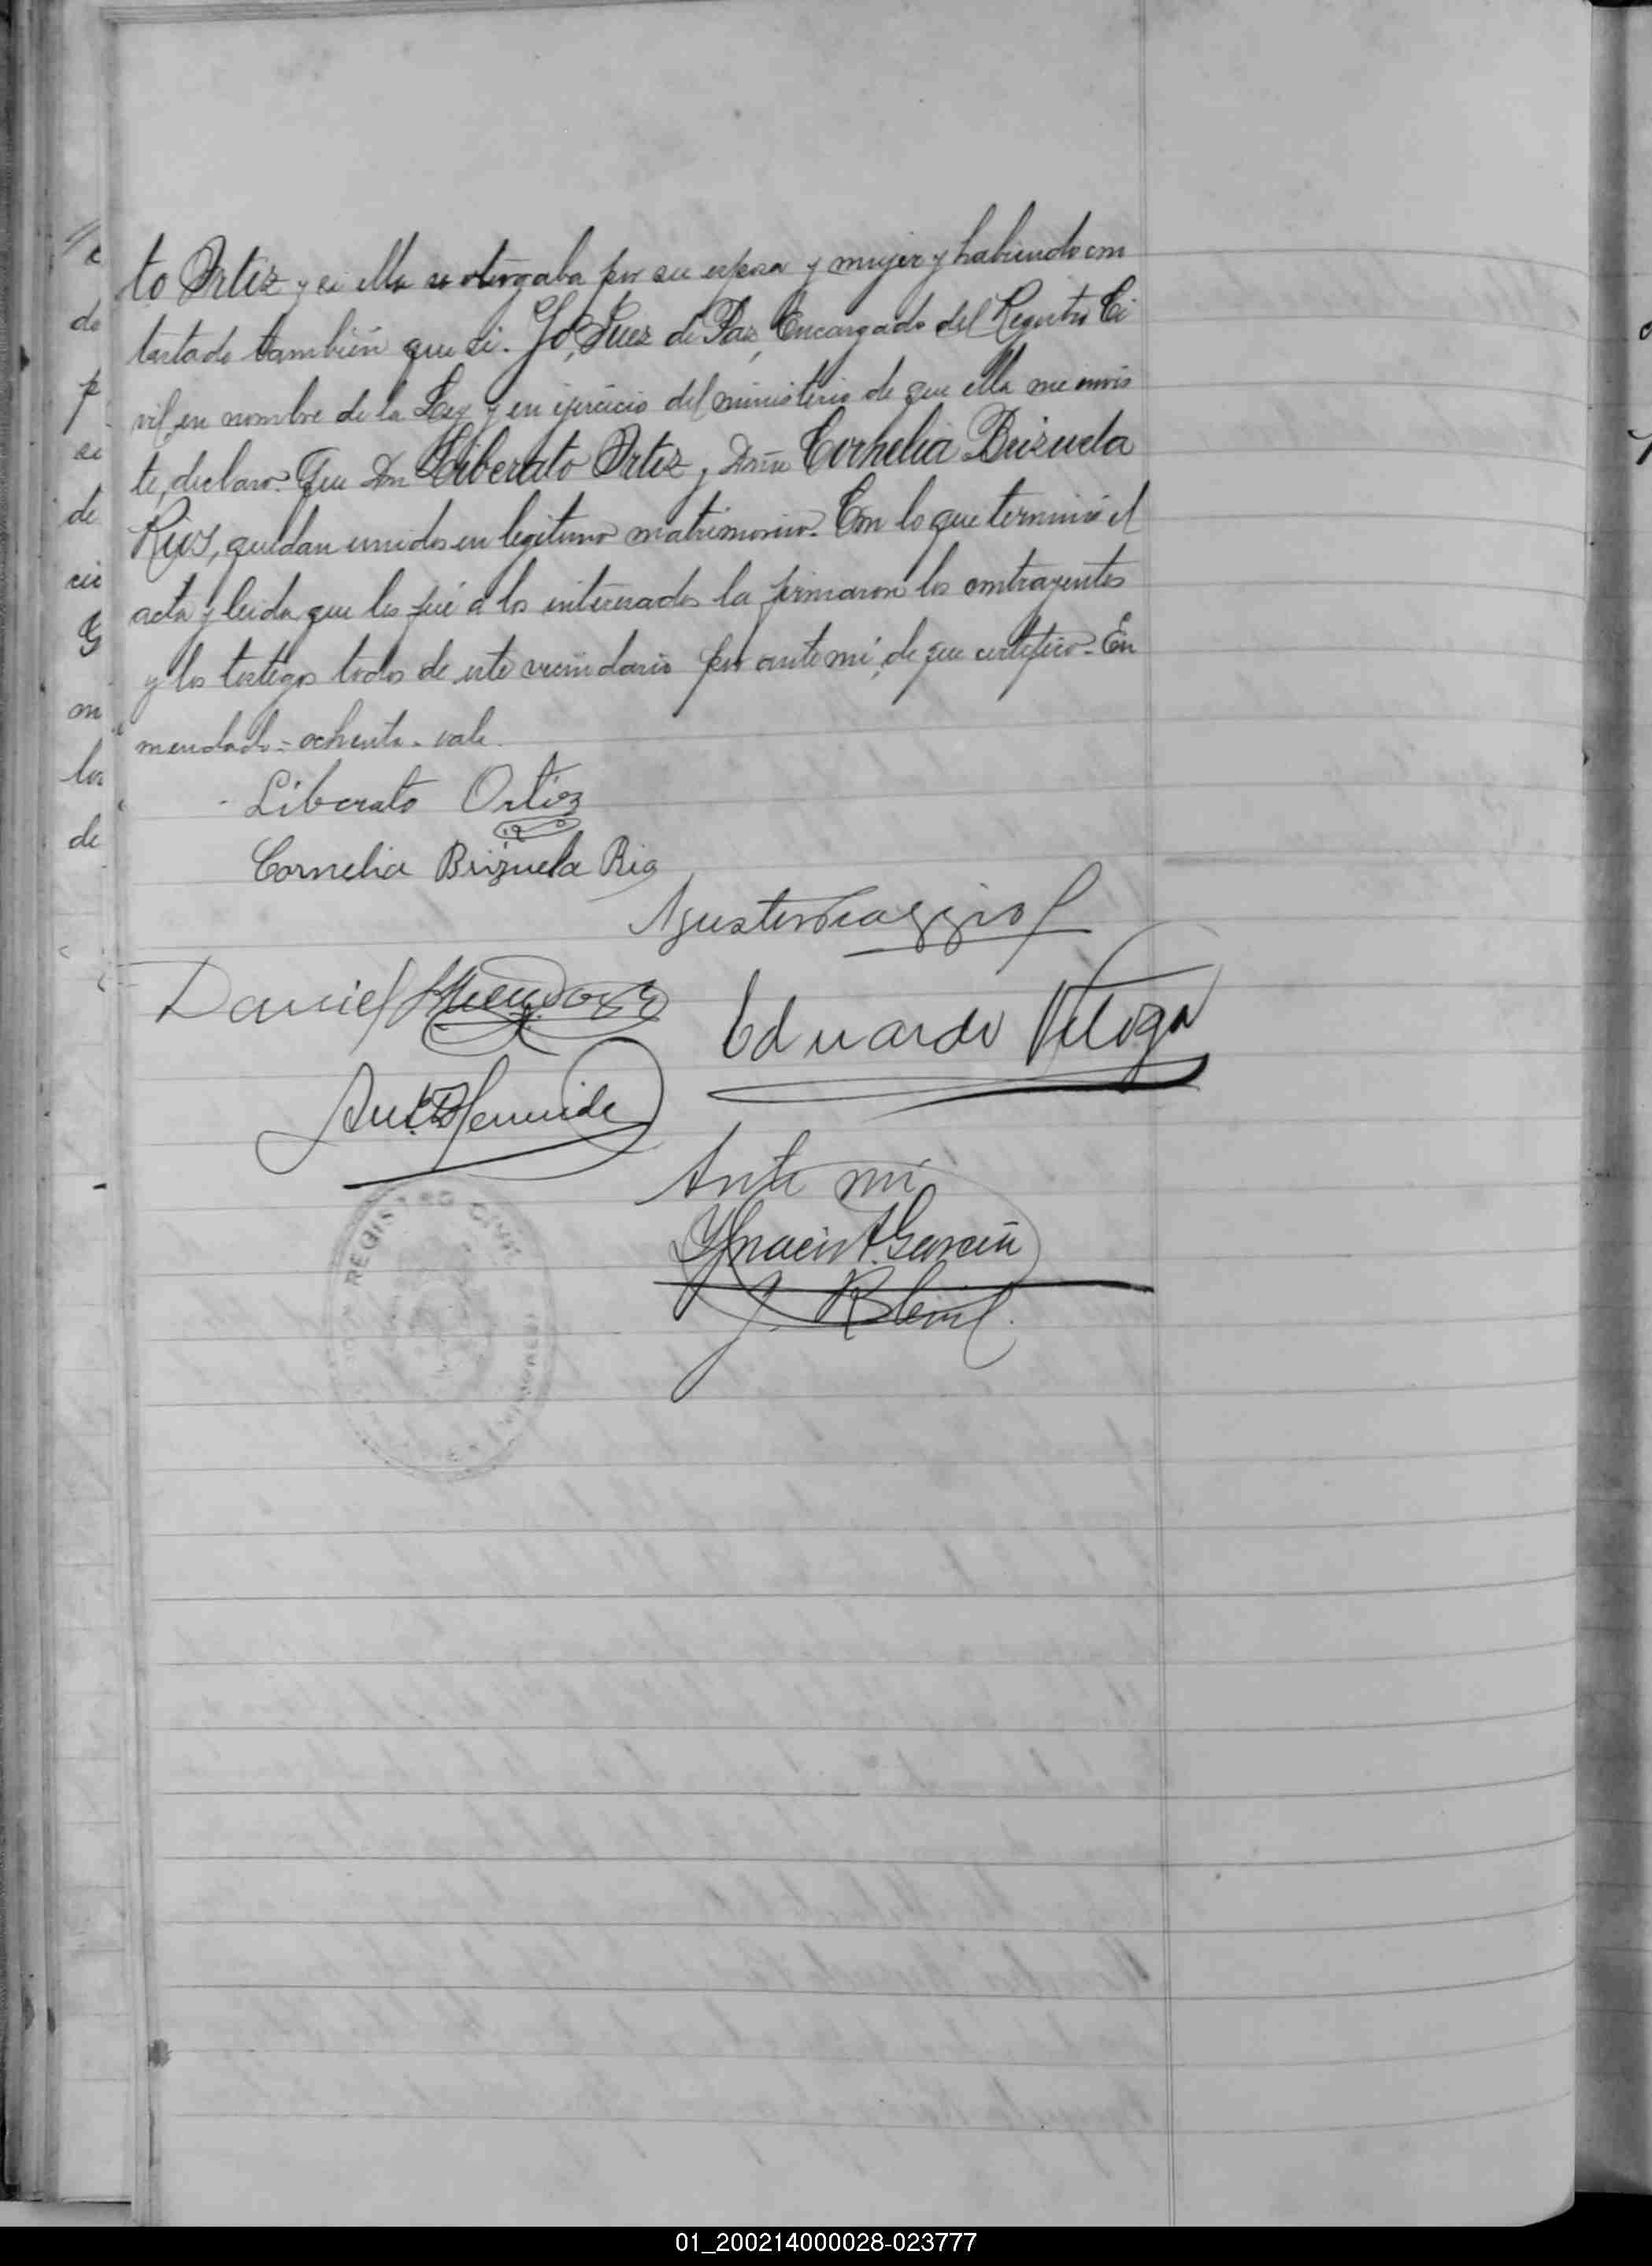 to Ortiz y si ella se otorgaba por su esposa y mujer y habiendo con
testado también que si. Yo, Juez de Paz, Encargado del Registro Ci
vil, en nombre de la Ley y en ejercicio del ministerio de que ella me invis
te, declaro: Que Don Liberato Ortiz, y Doña Cornelia Brizuela
Rios, quedan unidos en legitimo matrimonio. Con lo que terminó el
acta y leida que les fué á los interesados la firmaron los contrayentes
y los testigos todos de este vecindario por ante mi, de que certifico. En
mendado = ochenta = vale.
Liberato Ortiz
Cornelia Brizuela Rio
Agustin
Daniel Mendoza
Eduardo
Ante mi
Ygnacio A. Garcia
J. R.
REGISTRO CIVIL
e
do
p
se
de
cie
G
on
los
de
01_200214000028-023777